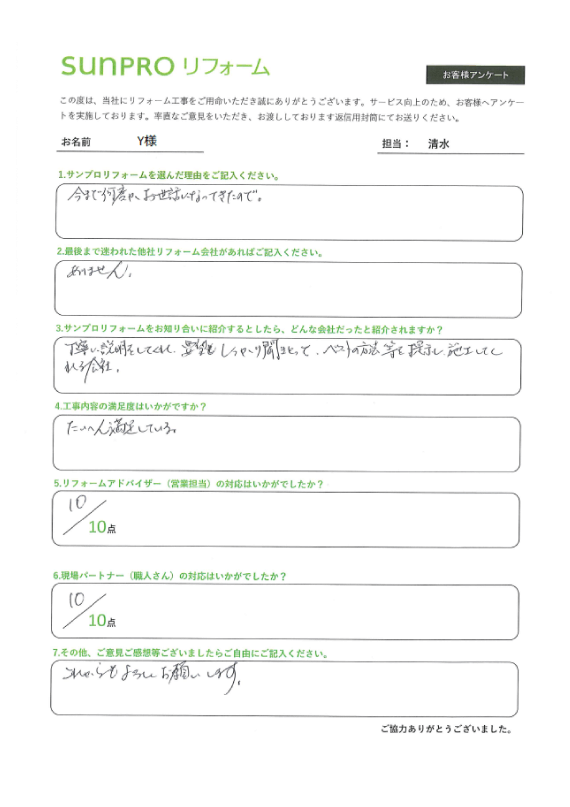 SUNPRO リフォーム
お客様アンケート
この度は、当社にリフォーム工事をご用命いただき誠にありがとうございます。サービス向上のため、お客様へアンケー
トを実施しております。率直なご意見をいただき、お渡ししております返信用封筒にてお送りください。
お名前 Y様 担当： 清水
1.サンプロリフォームを選んだ理由をご記入ください。
今まで何度か、お世話になってきたので。
2.最後まで迷われた他社リフォーム会社があればご記入ください。
ありません。
3.サンプロリフォームをお知り合いに紹介するとしたら、どんな会社だったと紹介されますか？
丁寧に説明をしてくれ、要望をしっかり聞きとって、ベストの方法等を提示し、施工してく
れる会社。
4.工事内容の満足度はいかがですか？
たいへん満足している。
5.リフォームアドバイザー（営業担当）の対応はいかがでしたか？
10
10点
6.現場パートナー（職人さん）の対応はいかがでしたか？
10
10点
7.その他、ご意見ご感想等ございましたらご自由にご記入ください。
これからもよろしくお願いします。
ご協力ありがとうございました。